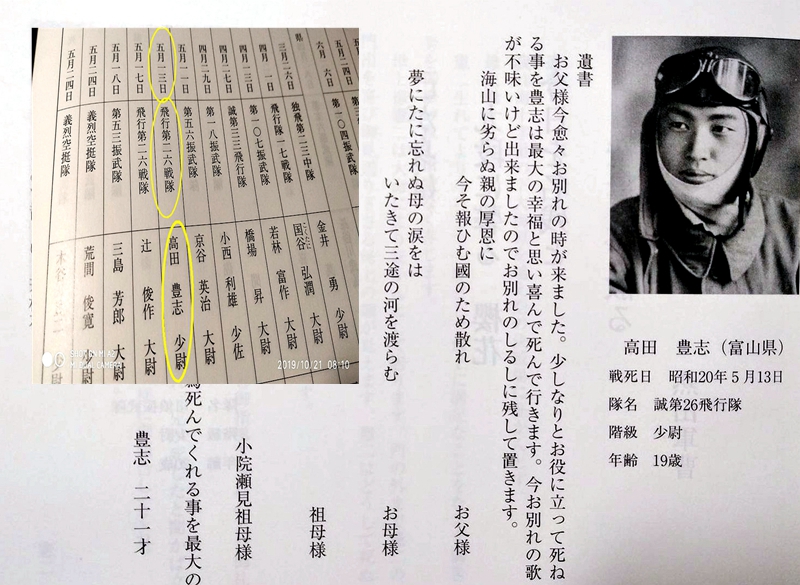 遺書
お父様今愈々お別れの時が来ました。少しなりとお役に立って死ね
る事を豊志は最大の幸福と思い喜んで死んで行きます。今お別れの歌
が不味いけど出来ましたのでお別れのしるしに残して置きます。
海山に劣らぬ親の厚恩に
今ぞ報ひむ國のため散れ
お父様
夢にたに忘れぬ母の涙をは
いたきて三途の河を渡らむ
お母様
祖母様
小院瀬見祖母様
死んでくれる事を最大の
豊志 二十一才
高田 豊志（富山県）
戦死日 昭和20年5月13日
隊名 誠第26飛行隊
階級 少尉
年齢 19歳
五月二四日
六月 六日 第一〇四振武隊 金井 勇 少尉
三月二六日 独飛第二三中隊 国谷 弘潤 大尉
四月 一日 飛行第一七戦隊 若林 富作 大尉
四月 三日 第一〇七振武隊 橋場 昇 大尉
四月一三日 誠第三三飛行隊 小西 利雄 少佐
四月二九日 第一八振武隊 京谷 英治 大尉
五月一一日 第五六振武隊
五月一三日 飛行第二六戦隊 高田 豊志 少尉
五月一七日 飛行第二六戦隊 辻 俊作 大尉
五月一八日 第五三振武隊 三島 芳郎 大尉
五月二四日 義烈空挺隊 荒間 俊寛 少尉
五月二四日 義烈空挺隊
2019/10/21 08:10